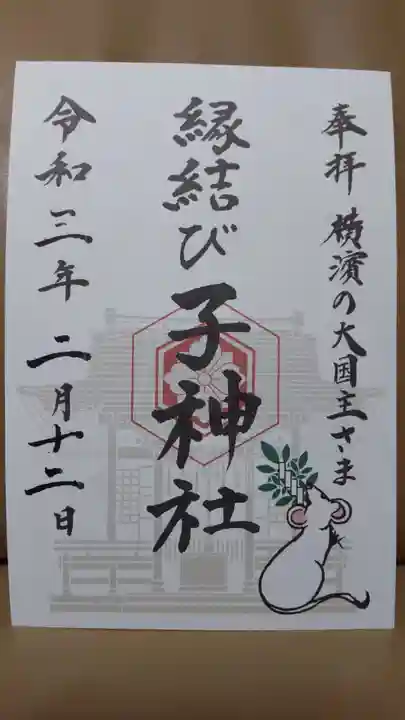 奉拝 横濱の大国主さま
縁結び 子神社
令和三年 二月十二日